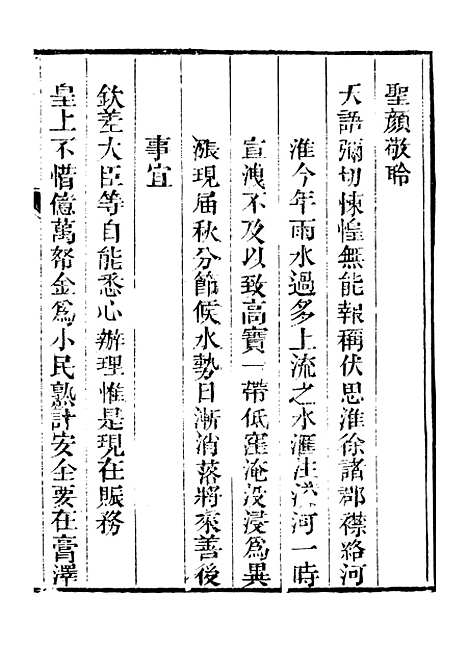 聖顏敬聆
天語彌切悚惶無能報稱伏思淮徐諸郡襟絡河
淮今年雨水過多上流之水滙注洪河一時
宣洩不及以致高寶一帶低窪淹没浸爲異
漲現届秋分節候水勢日漸消落將來善後
事宜
欽差大臣等自能悉心辦理惟是現在賑務
皇上不惜億萬帑金爲小民熟計安全要在膏澤